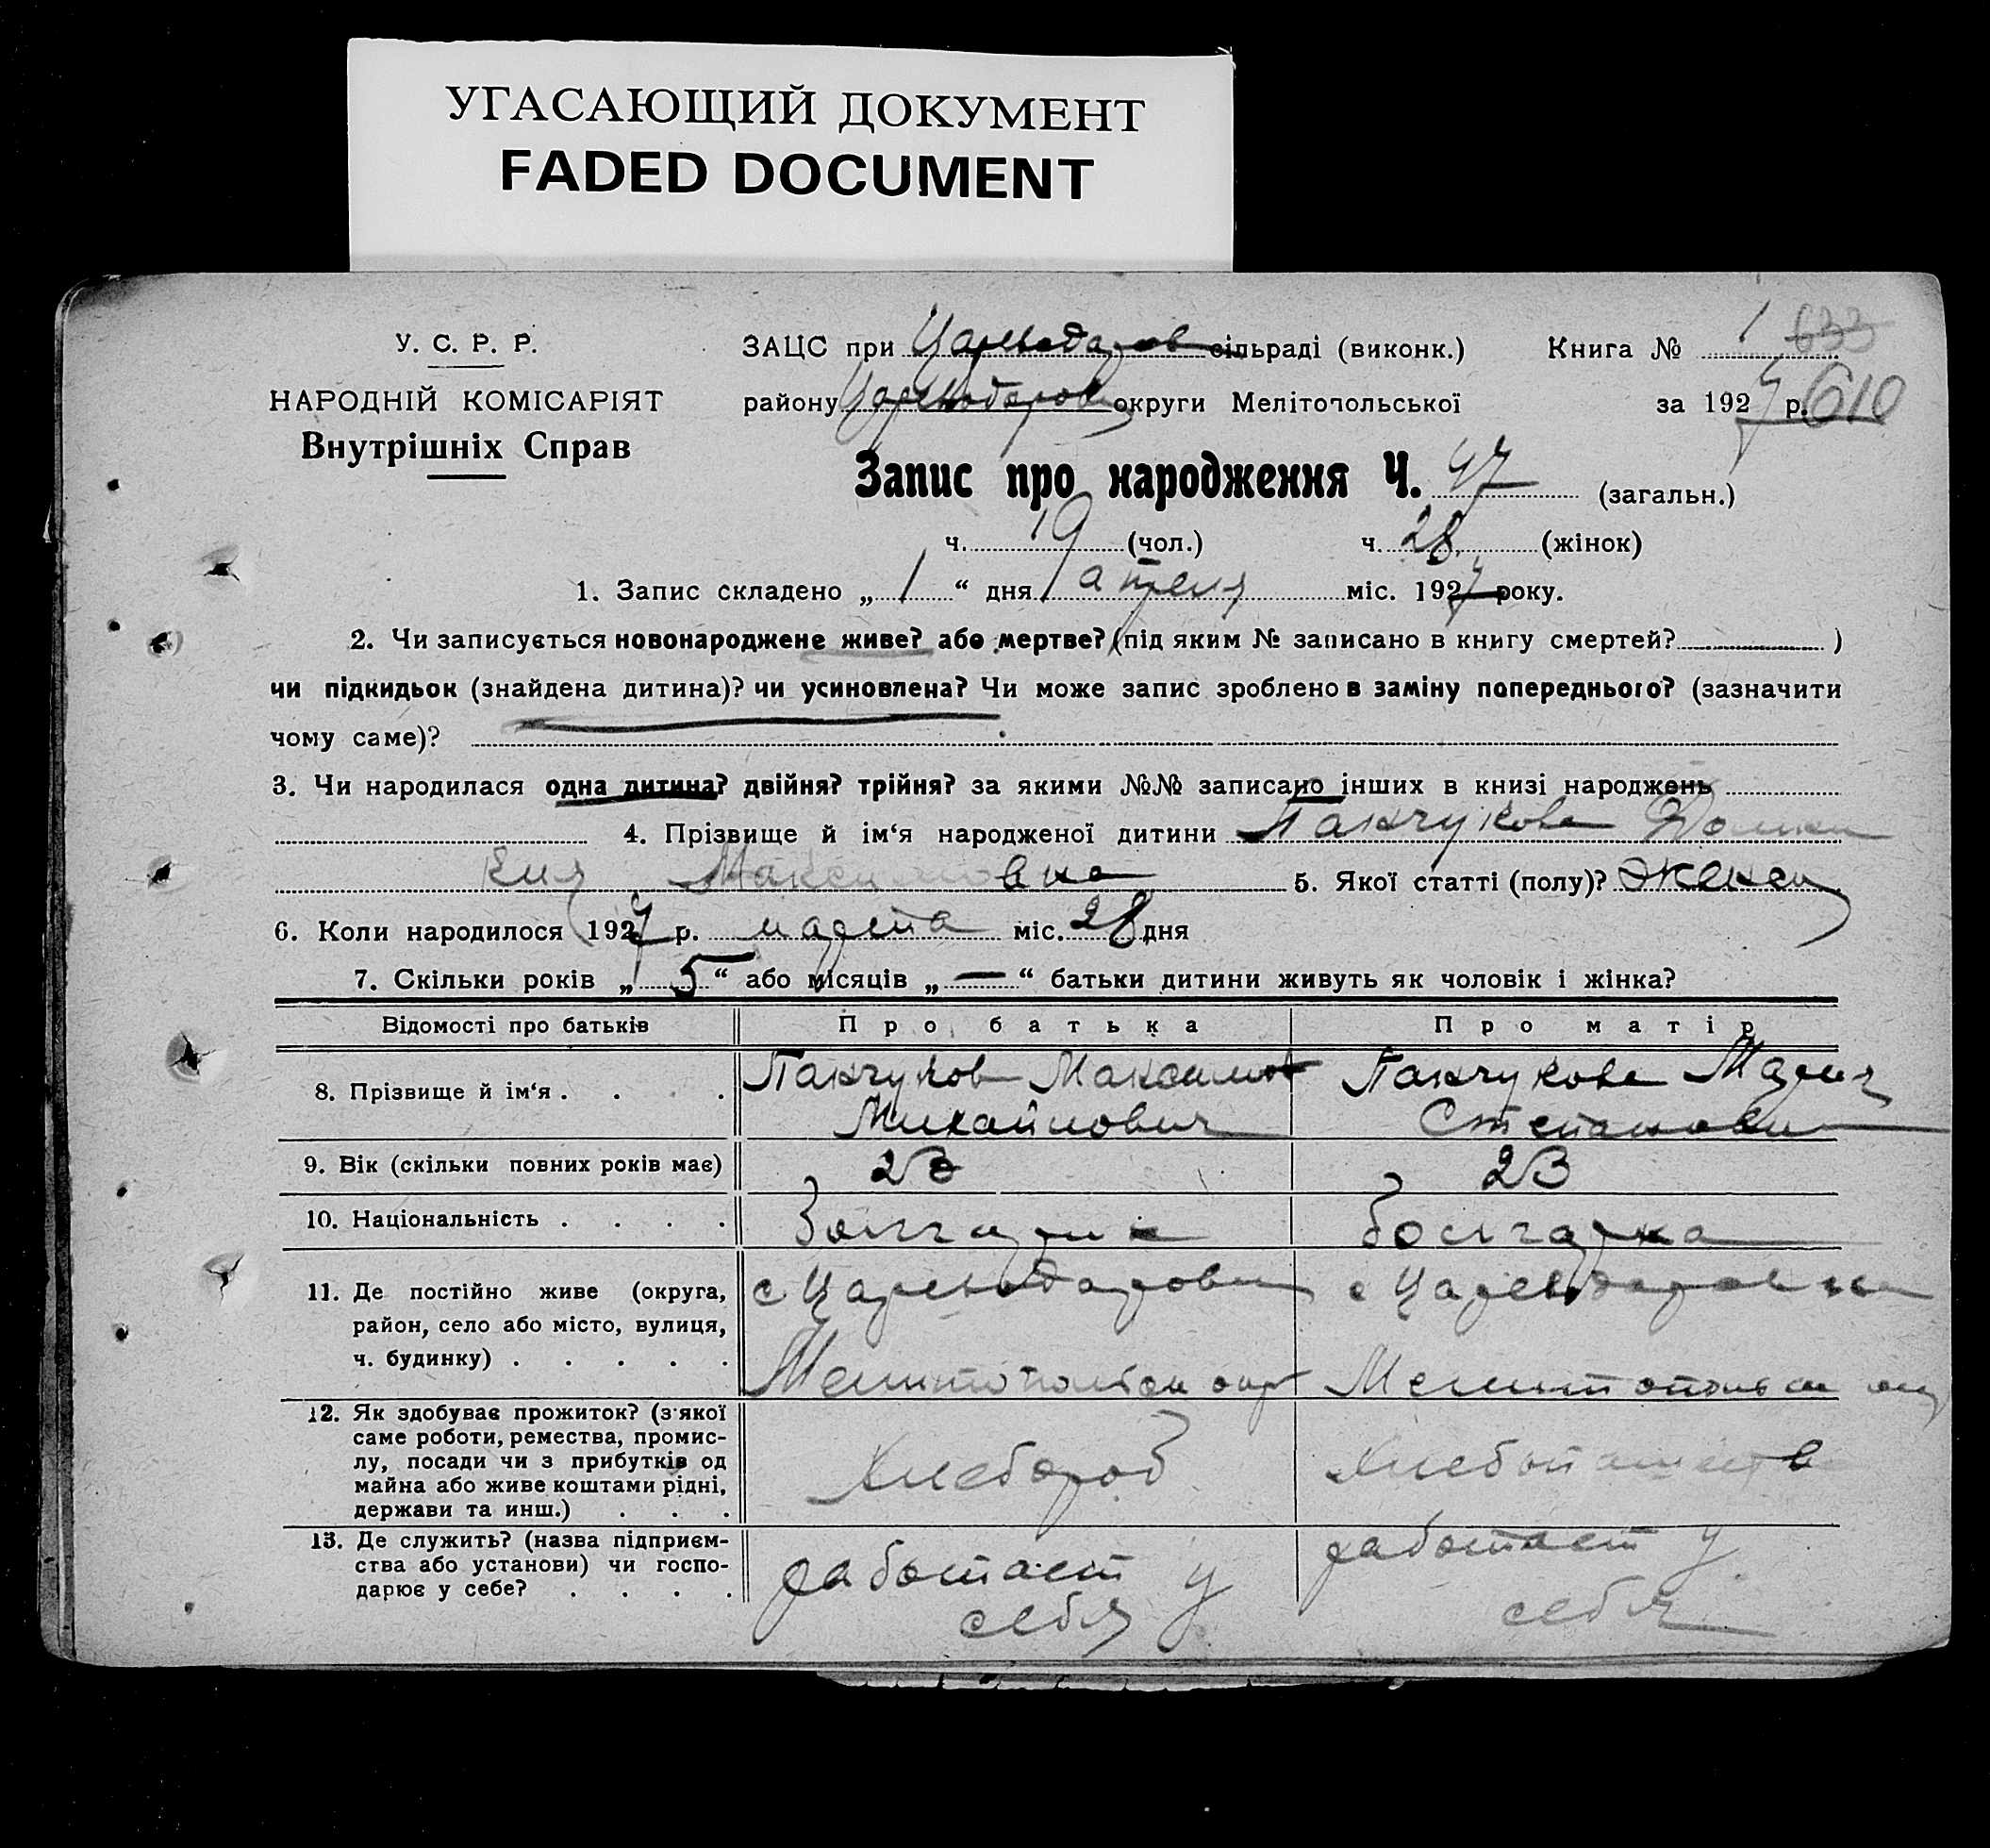 УГАСАЮЩИЙ ДОКУМЕНТ
FADED DOCUMENT
У. С. Р. Р.
НАРОДНІЙ КОМІСАРІЯТ
Внутрішніх Справ
ЗАЦС при Цареводаров сільраді (виконк.) Книга № 1 633
району Цареводаров округи Мелітопольської за 1927 р. 610
Запис про народження Ч. 47 (загальн.)
ч. 19 (чол.) ч. 28 (жінок)
1. Запис складено „ 1 “ дня апреля міс. 1927 року.
2. Чи записується новонароджене живе? або мертве? (під яким № записано в книгу смертей? )
чи підкидьок (знайдена дитина)? чи усиновлена? Чи може запис зроблено в заміну попереднього? (зазначити
чому саме)?
3. Чи народилася одна дитина? двійня? трійня? за якими №№ записано інших в книзі народжень
4. Прізвище й ім‘я народженої дитини Панчукова Домни
кия Максимовна 5. Якої статті (полу)? женск
6. Коли народилося 1927 р. марта міс. 28 дня
7. Скільки років „ 5 “ або місяців „ — “ батьки дитини живуть як чоловік і жінка?
Відомості про батьків Про батька Про матір
8. Прізвище й ім‘я . . . Панчуков Максим Панчукова Мария
Михайлович Степановн
9. Вік (скільки повних років має) 23
10. Національність . . . . Болгарин болгарка
11. Де постійно живе (округа,
район, село або місто, вулиця,
ч. будинку) . . . . .
с Цареводаровк с Цареводаровка
Мелитопольск окр Мелитопольск окр
12. Як здобуває прожиток? (з якої
саме роботи, ремества, промис-
лу, посади чи з прибутків од
майна або живе коштами рідні,
держави та инш.) . . .
Хлебороб Хлебопашеств
13. Де служить? (назва підприєм-
ства або установи) чи госпо-
дарює у себе? . . . .
работает у работает у
себя себя